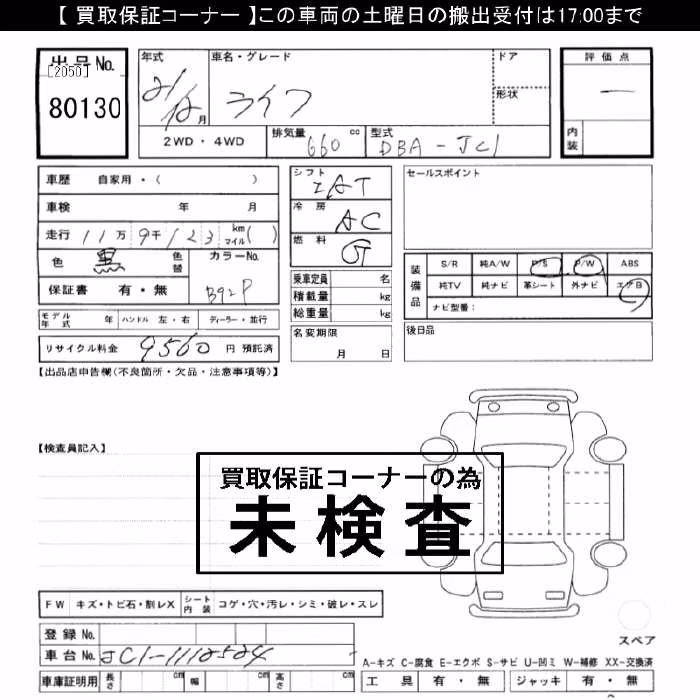 【 買取保証コーナー 】この車両の土曜日の搬出受付は17:00まで
出品No.
[2050]
80130
年式
21/12月
車名・グレード
ライフ
ドア
形状
評価点
一
内装
2WD・4WD
排気量 660 cc
型式 DBA-JC1
車歴 自家用・( )
車検 年 月
走行 11万9千123 km マイル( )
色 黒 色替
カラーNo.
B92P
保証書 有・無
モデル年式 年 ハンドル 左・右 ディーラー・並行
リサイクル料金 9560 円 預託済
シフト IAT
冷房 AC
燃料 G
乗車定員 名
積載量 kg
総重量 kg
名変期限
月 日
セールスポイント
装備品
S/R 純A/W P/S P/W ABS
純TV 純ナビ 革シート 外ナビ エアB
ナビ型番:
後日品
【出品店申告欄(不良箇所・欠品・注意事項等)】
【検査員記入】
買取保証コーナーの為
未検査
FW キズ・トビ石・割レX シート内装 コゲ・穴・汚レ・シミ・破レ・スレ
登録No.
車台No. JC1-1112524
車庫証明用 長さ cm 幅 cm 高さ cm
スペア
A-キズ C-腐食 E-エクボ S-サビ U-凹ミ W-補修 XX-交換済
工具 有・無 ジャッキ 有・無